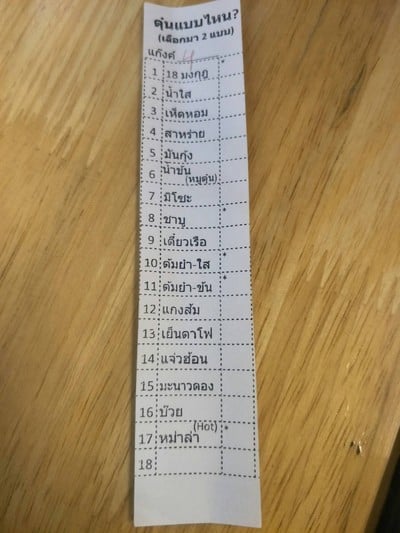 ตุ๋นแบบไหน?
(เลือกมา 2 แบบ)
แก๊งค์ 4
1 18 มงกุฎ *
2 น้ำใส
3 เห็ดหอม
4 สาหร่าย
5 มันกุ้ง
6 น้ำข้น (หมูตุ๋น)
7 มิโซะ
8 ชาบู *
9 เตี๋ยวเรือ
10 ต้มยำ-ใส *
11 ต้มยำ-ข้น *
12 แกงส้ม
13 เย็นตาโฟ
14 แจ่วฮ้อน
15 มะนาวดอง
16 บ๊วย
17 หม่าล่า (Hot) *
18